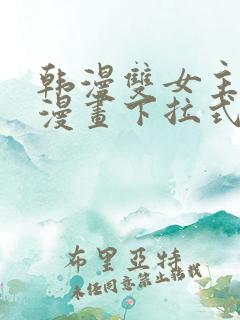 韩漫雙女主
漫畫下拉式
布里亞特
未经同意禁止转载